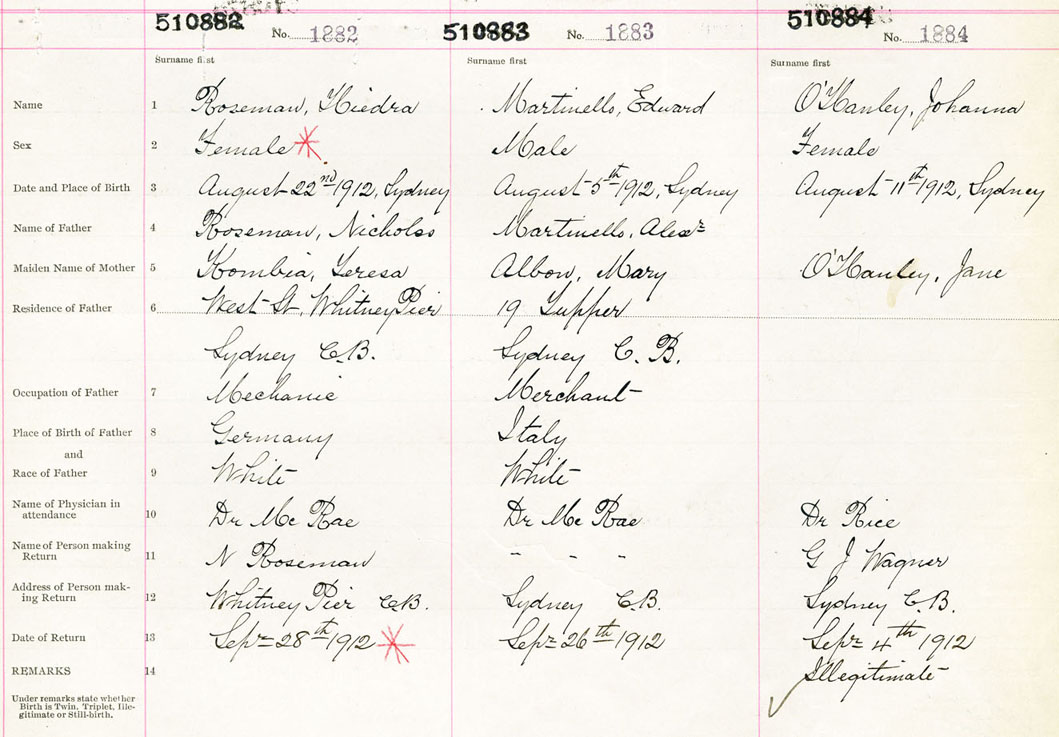 510882 No. 1882 510883 No. 1883 510884 No. 1884
Surname first Surname first Surname first
Name 1 Roseman, Hiedra Martinello, Edward O'Hanley, Johanna
Sex 2 Female Male Female
Date and Place of Birth 3 August 22nd 1912, Sydney August 5th 1912, Sydney August 11th 1912, Sydney
Name of Father 4 Roseman, Nicholas Martinello, Alexr
Maiden Name of Mother 5 Kombia, Teresa Albon, Mary O'Hanley, Jane
Residence of Father 6 West St, Whitney Pier 19 Tupper
Sydney C.B. Sydney C. B.
Occupation of Father 7 Mechanic Merchant
Place of Birth of Father 8 Germany Italy
and
Race of Father 9 White White
Name of Physician in
attendance 10 Dr Mc Rae Dr Mc Rae Dr Rice
Name of Person making
Return 11 N Roseman - - - G J Wagner
Address of Person mak-
ing Return 12 Whitney Pier C.B. Sydney C.B. Sydney C.B.
Date of Return 13 Sepr 28th 1912 Sepr 26th 1912 Sepr 4th 1912
REMARKS 14 Illegitimate
Under remarks state whether
Birth is Twin, Triplet, Ille-
gitimate or Still-birth.